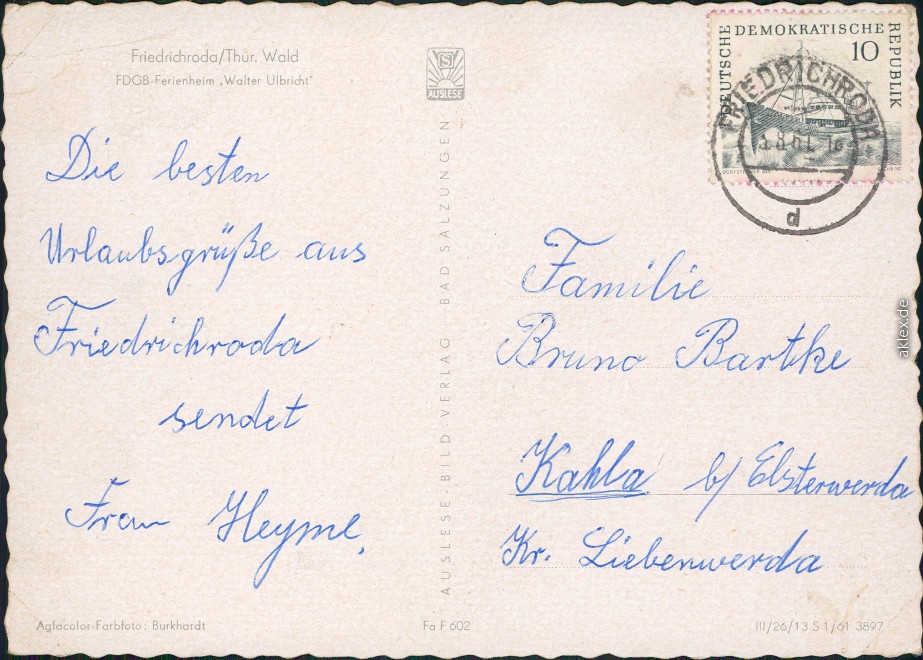 Friedrichroda/Thür. Wald
FDGB-Ferienheim „Walter Ulbricht"
S
AUSLESE
Die besten
Urlaubsgrüße aus
Friedrichroda
sendet
Frau Heyme,
AUSLESE-BILD-VERLAG BAD SALZUNGEN
DEUTSCHE DEMOKRATISCHE REPUBLIK
10
FRIEDRICHRODA
d
Familie
Bruno Bartke
Kahla b/ Elsterwerda
Kr. Liebenwerda
aklex.de
Agfacolor-Farbfoto: Burkhardt
Fa F 602
III/26/13 S 1/61 3897